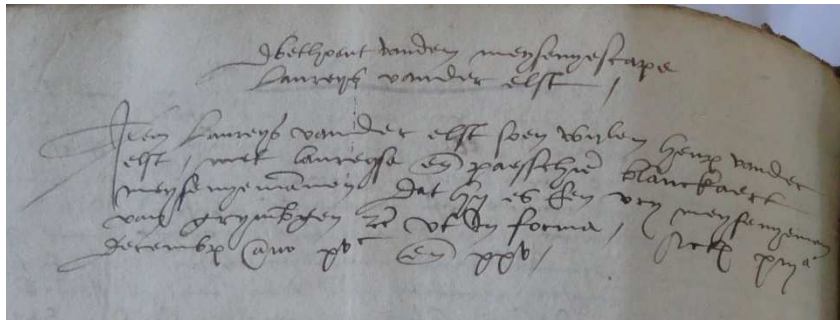 Dbethoent vanden meysenyescape
Laureys vander elst /
Item Laureys vander elst soen wylen henrx vander
elst / met laureyse en paesschie blanckaert
meysenyemannen dat hy es een vry meysenyeman
van grymbgen etc ut in forma / Actu prma
decembr ano xvc en xxv /